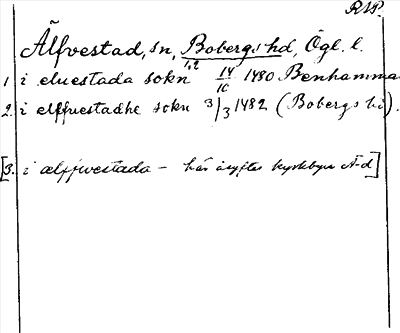 RAP.
Älfvestad, sn, Bobergs hd, Ögl. l.
1,2
1. i eluestada sokn 14/10 1480 Benhamma
2. i elffuestadhe sokn 3/3 1482 (Bobergs hd).
[3. i ælffwestada – här åsyftas kyrkbyn Ä-d]